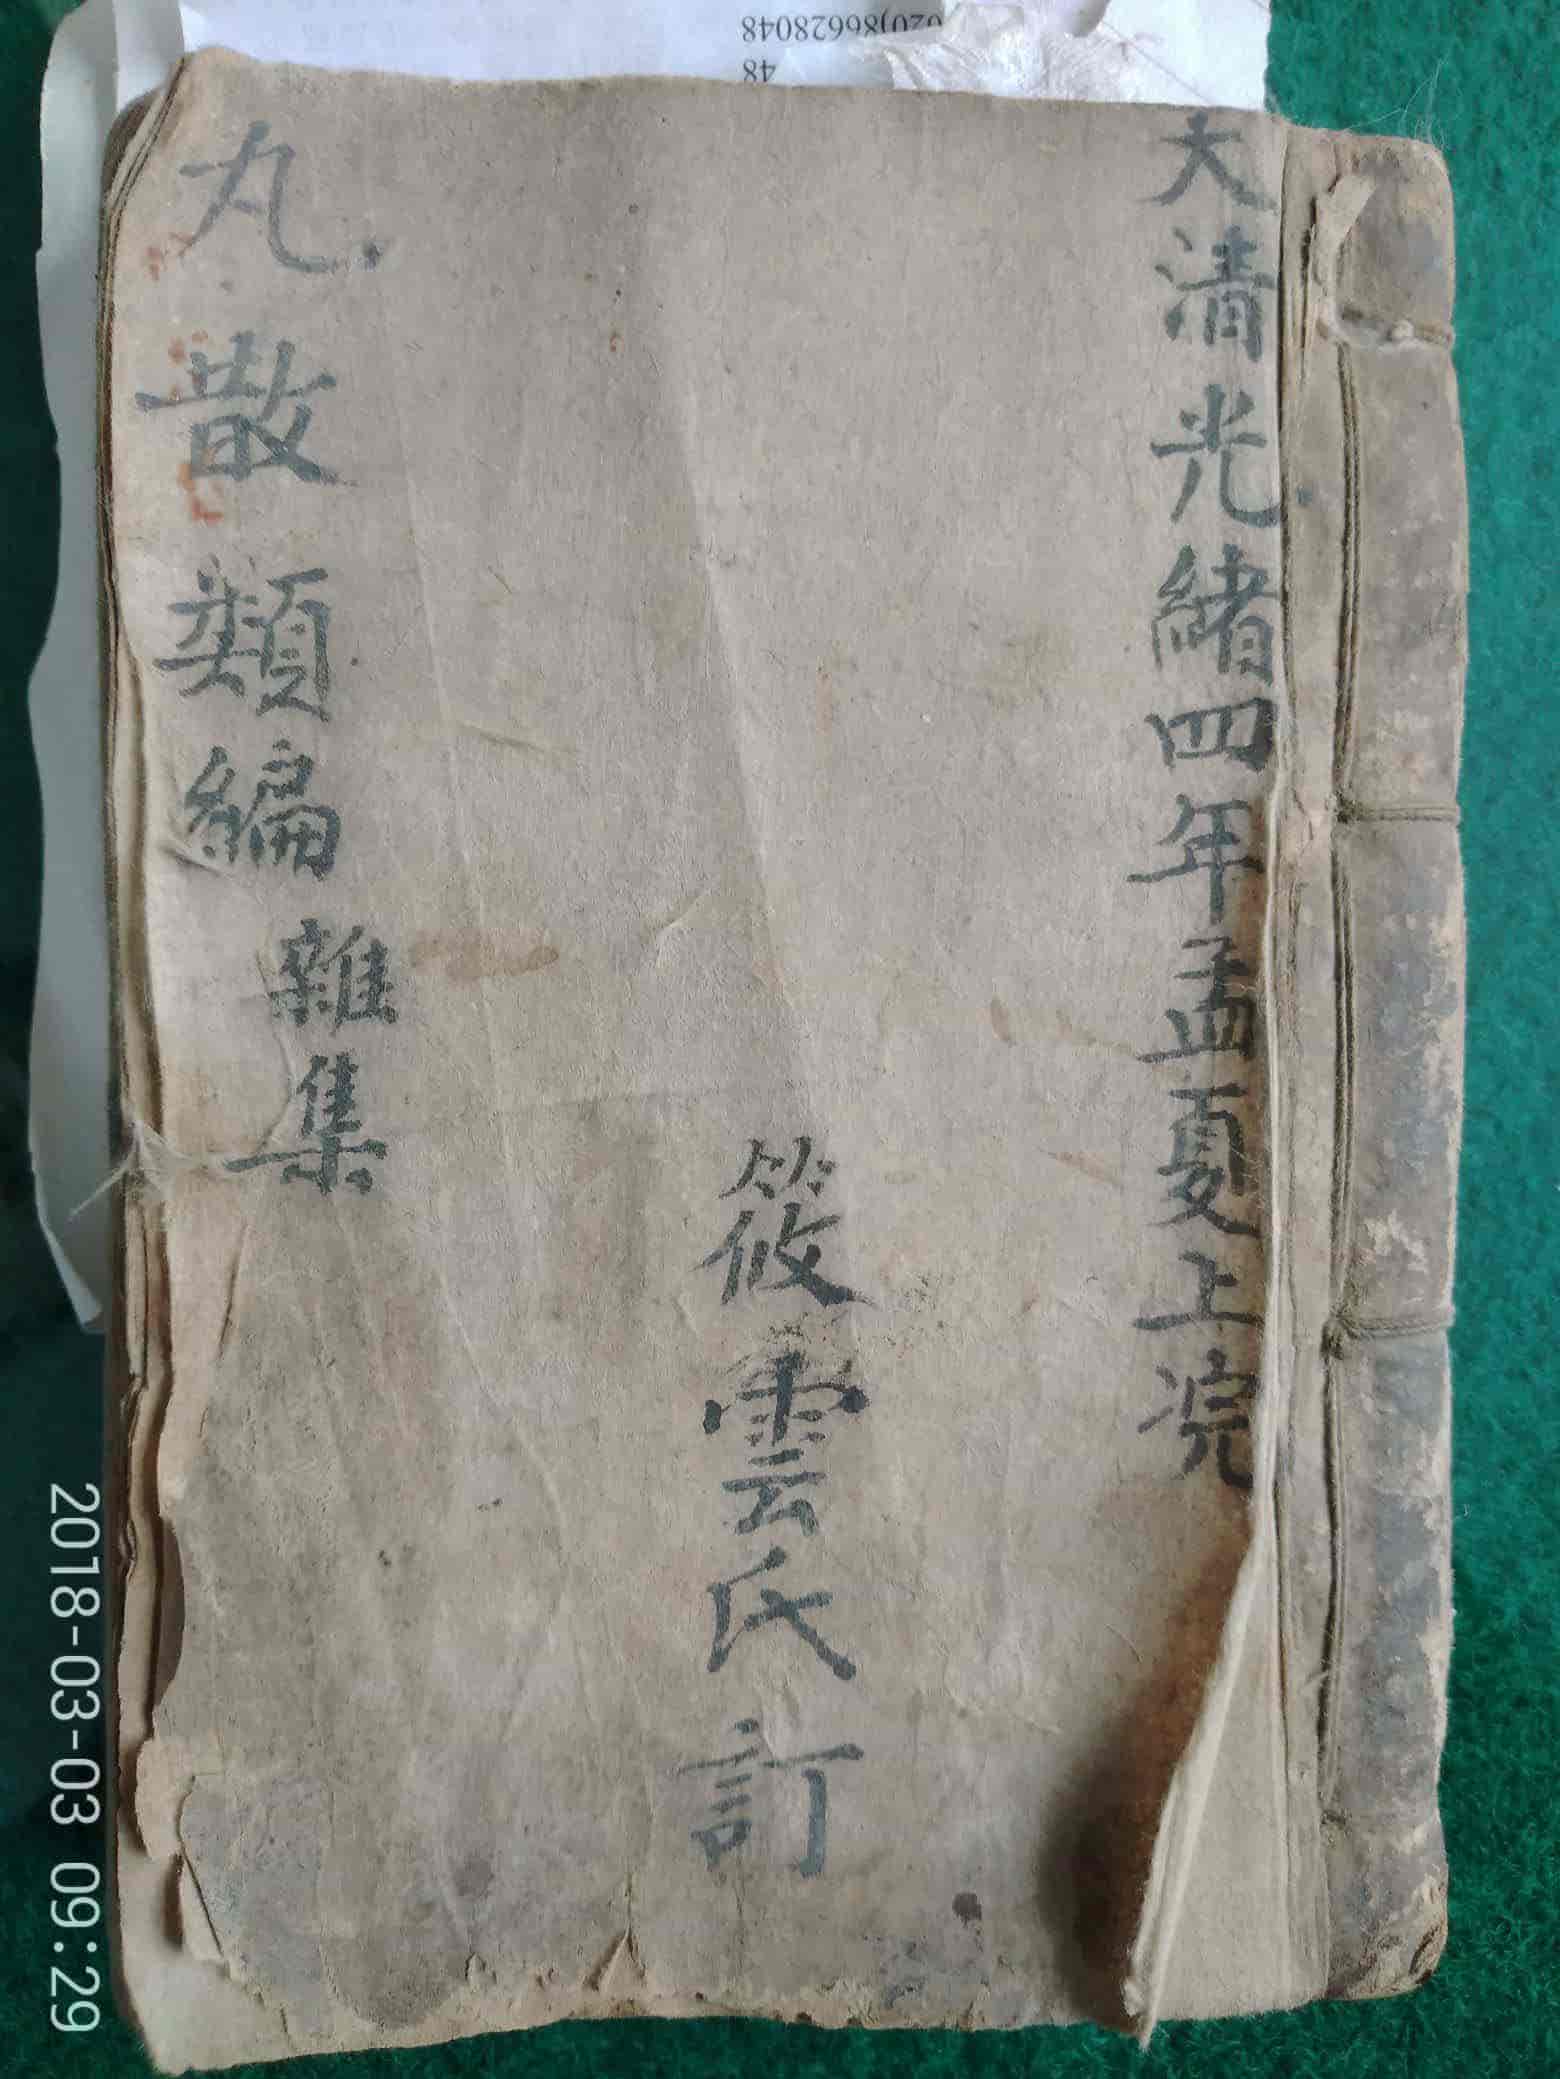 大清光緒四年孟夏上浣
筱雲氏訂
丸散類編
雜集
020)86628048
48
2018-03-03 09:29